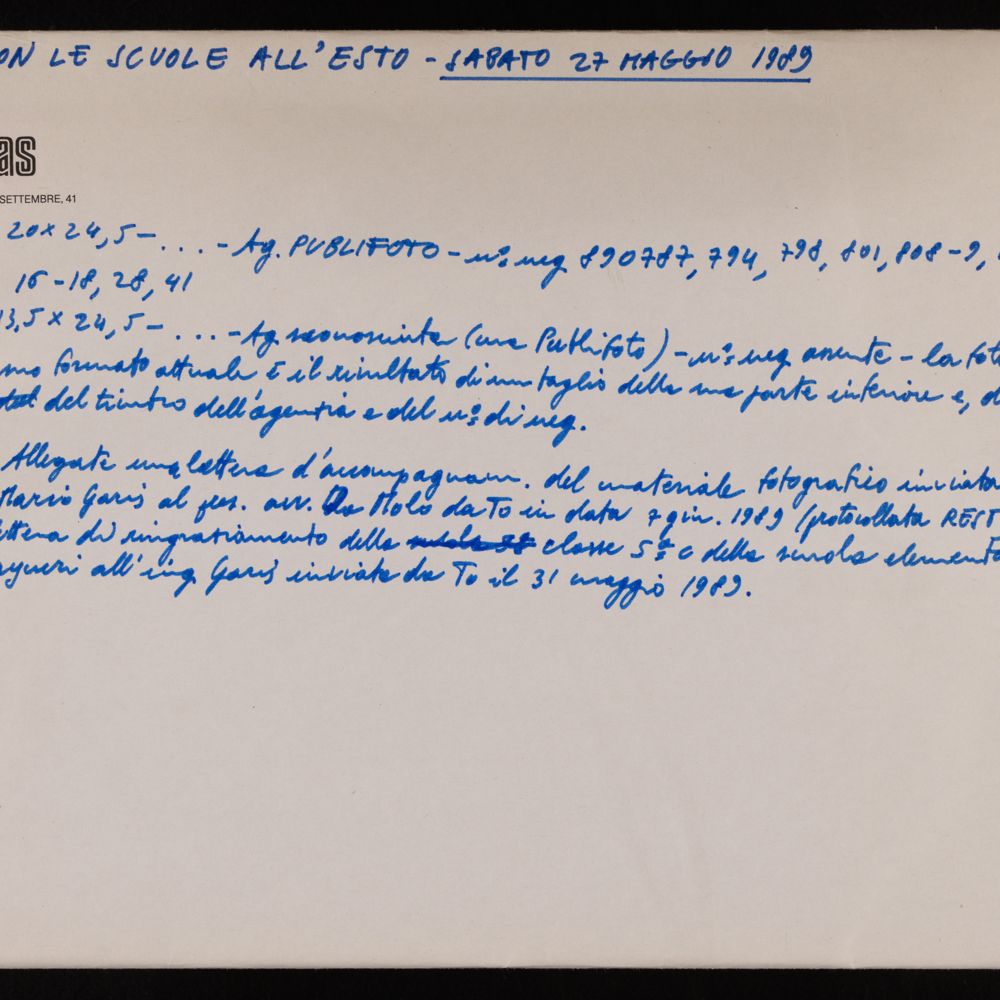 ON LE SCUOLE ALL'ESTO - SABATO 27 MAGGIO 1989
as
SETTEMBRE, 41
20x24,5 - ... - Ag. PUBLIFOTO - n°: neg 890787, 794, 798, 801, 808-9,
16-18, 28, 41
13,5 x 24,5 - ... - Ag sconosciuta (ma Publifoto) - n°: neg assente - la fot
mo formato attuale È il risultato di un taglio della sua parte inferiore e, d
del timbro dell'agenzia e del n°: di neg.
Allegate una lettera d'accompagnam. del materiale fotografico inviata
Mario Garis al pres. avv. Da Molo da To in data 7 giu. 1989 (protocollata REST
ettera di ringraziamento della classe 5ª C della scuola elementa
all'ing Garis inviata da To il 31 maggio 1989.